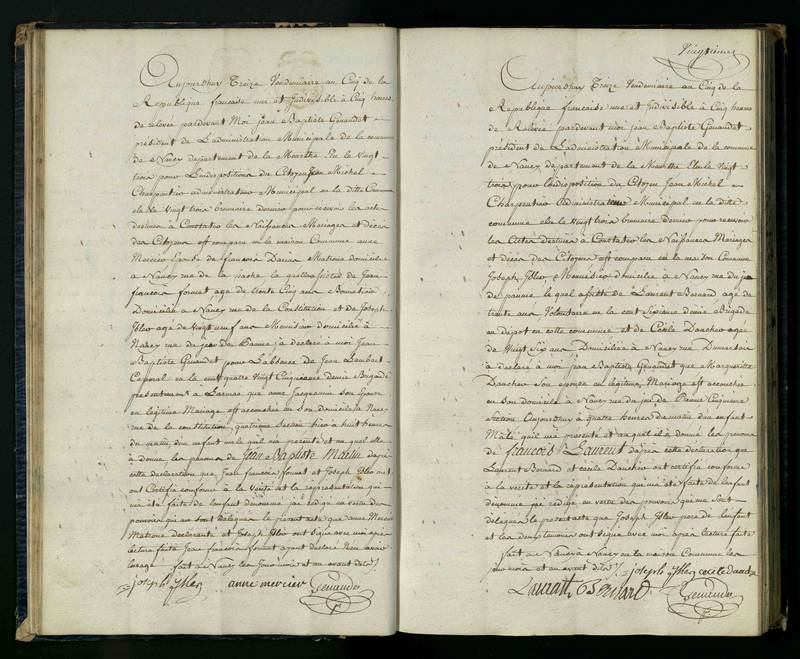 Aujourdhuy Treize Vendemiaire an Cinq de la
Republique francaise une et Indivisible à Cinq heures
de relevée pardevant Moi Jean Baptiste Genaudet
president de L'administration Municipale de la commune
de Nancy departement de la Meurthe Elu le Vingt
trois pour Lindisposition du Citoyen Jean Michel
Charpentier administrateur Municipal en la ditte Commune
elu le Vingt trois brumaire dernier pour recevoir les actes
destinés à Constater les Naissances Mariages et décès
des Citoyens est comparu en la maison Commune anne
Mercier Epouse de francois Matrone domiciliée
a Nancy rue de la hache la quelle assistée de Jean
francois formet age de trente Cinq ans
Domicilié a Nancy rue de la Constitution et de Joseph
age de Vingt neuf ans Menuisier domicilié à
Nancy rue du jeu de Paume a déclaré à moi Jean
Baptiste Genaudet pour Labsence de Jean
Caporal en la cent quatre Vingt Cinquieme demie Brigade
presentement a Larmée que anne Jacquemine son Epouse
en légitime Mariage est accouchée en son domicile à Nancy
rue de la constitution, hier à huit heures
du matin d'un enfant male quil ma presenté et au quel elle
a donné les prenoms de Jean Baptiste Martin dapres
cette declaration que Jean francois formet et Joseph ont
ont Certifié conforme à la Verité et la représentation qui
ma été faite de lenfant denommé jai redigé en vertu des
pouvoirs qui me sont delegués le present acte que anne Mercier
Matrone declarante et Joseph ont signé avec moi apres
lecture faite Jean francois formet ayant declaré Nen avoir
lusage fait a Nancy les jour mois et an avant dits
joseph anne mercier Genaudet
Vingtieme
Aujourdhuy Treize Vendemiaire an Cinq de la
Republique francaise une et Indivisible à Cinq heures
de Relevée pardevant moi Jean Baptiste Genaudet
president de Ladministration Municipale de la commune
de Nancy departement de la Meurthe Elu le Vingt
trois pour Lindisposition du Citoyen Jean Michel
Charpentier Administrateur Municipal en la ditte
commune elu le Vingt trois brumaire dernier pour recevoir
les Actes destinés à Constater les Naissances Mariages
et décès des Citoyens est comparu en la maison Commune
Joseph Menuisier domicilié à Nancy rue du jeu
de paume le quel assisté de Laurent Bernard agé de
trente ans Volontaire en la cent Sixieme demie Brigade
en depot en cette commune et de Cécile Dauchew agée
de Vingt Six ans Domiciliée à Nancy rue
à declaré à moi Jean Baptiste Genaudet que Marguerite
Dauchew son epouse en légitime Mariage est accouchée
en son domicile à Nancy rue du jeu de Paume Cinquieme
Section Aujourdhuy à quatre heures du matin dun enfant
Mâle quil ma presenté et au quel il à donné les prenoms
de francois Laurent dapres cette declaration que
Laurent Bernard et cecile Dauchew ont certifié conforme
à la verité et la representation qui ma été faite de lenfant
denommé jai redigé en vertu des pouvoirs qui me sont
delegués le present acte que Joseph pere de lenfant
et les deux temoins ont signé avec moi apres lecture faite
fait à Nancy en la maison Commune les
jour mois et an avant dits joseph cecile dauchew
Laurent Bernard Genaudet